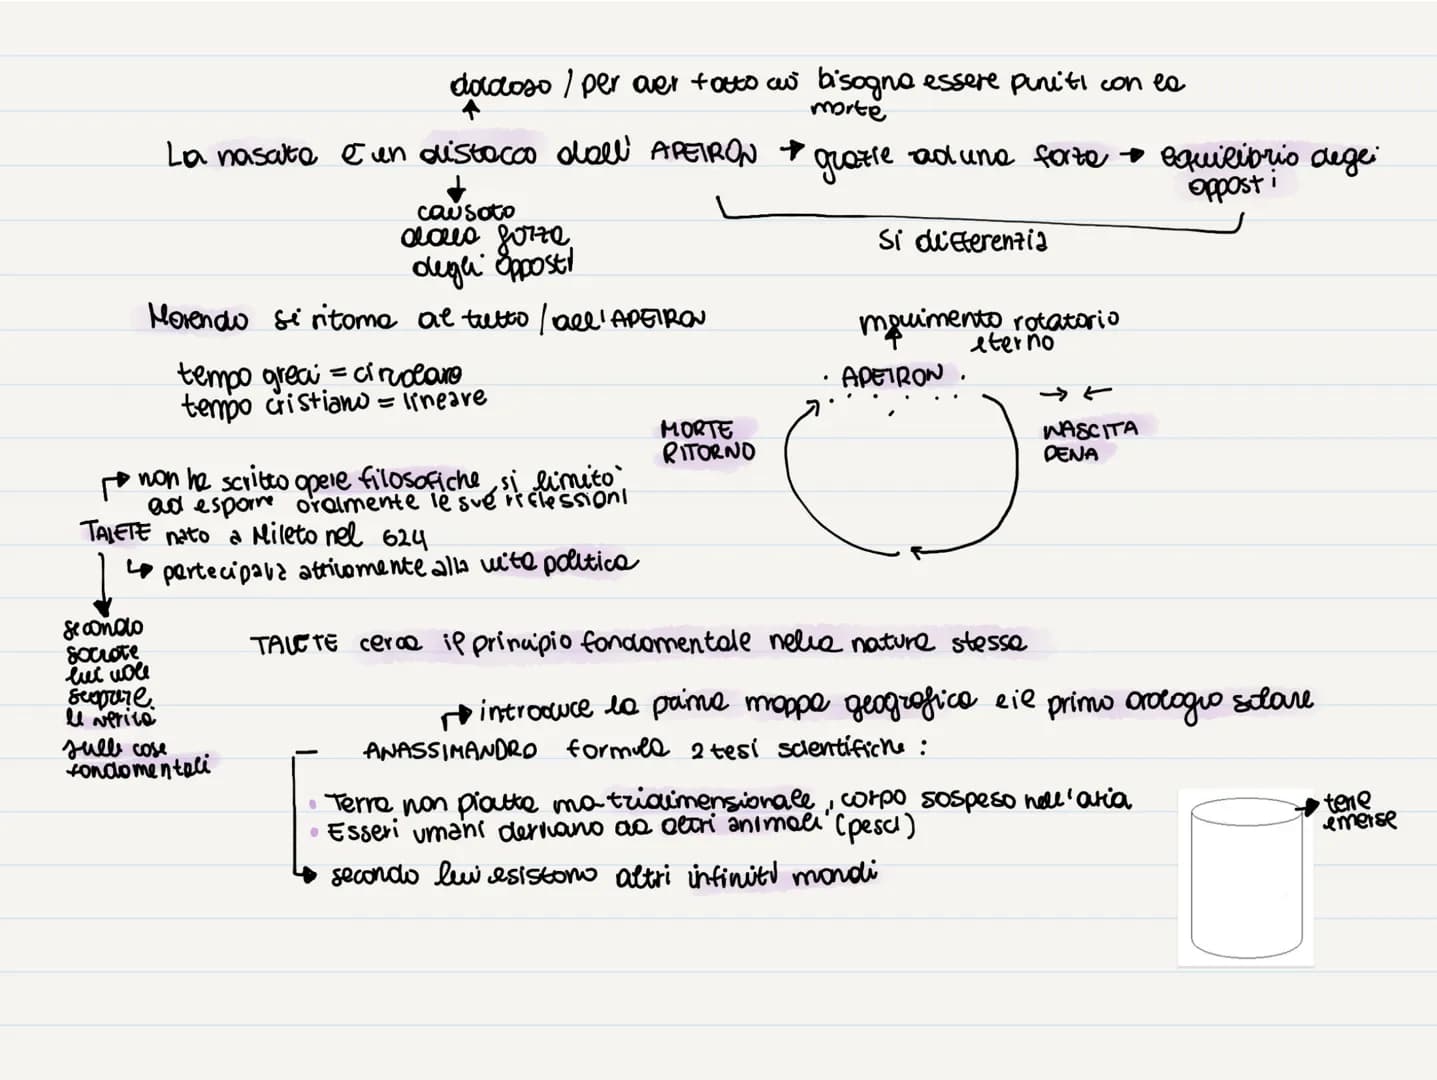 doloroso / per aver fatto ciò bisogna essere puniti con la
morte
La nascita è un distacco dall' APEIRON → grazie ad una forza → equilibrio degli
opposti
causato
dalla forza
degli opposti
si differenzia
Morendo si ritorna al tutto / all'APEIRON
movimento rotatorio
eterno
tempo greci = circolare
tempo cristiano = lineare
APEIRON
→ ←
MORTE
RITORNO
NASCITA
PENA
non ha scritto opere filosofiche, si limitò
ad esporre oralmente le sue riflessioni
TALETE nato a Mileto nel 624
↳ partecipava attivamente alla vita politica
secondo
socrate
lui vole
scoprire
le verità
sulle cose
fondamentali
TALETE cerca il principio fondamentale nella natura stessa
→ introduce la prima mappa geografica e il primo orologio solare
ANASSIMANDRO formula 2 tesi scientifiche :
• Terra non piatta ma tridimensionale, corpo sospeso nell'aria
• Esseri umani derivano da altri animali (pesci)
→ secondo lui esistono altri infiniti mondi
terre
emerse